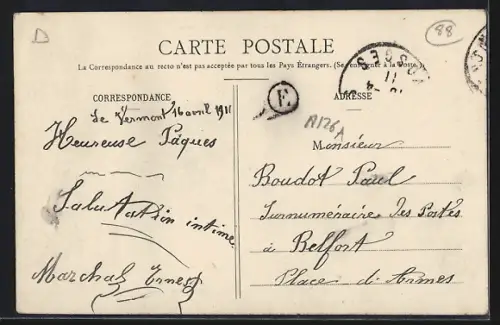 D
88
CARTE POSTALE
La Correspondance au recto n'est pas acceptée par tous les Pays Étrangers. (Se renseigner à la Poste.)
VOSGES
11
CORRESPONDANCE
E
ADRESSE
A126A
de Vermont 16 avril 1911
Heureuse Pâques
Salutation intime
Marchal Ernest
Monsieur
Boudot Paul
Surnuméraire des Postes
à Belfort
Place d'Armes